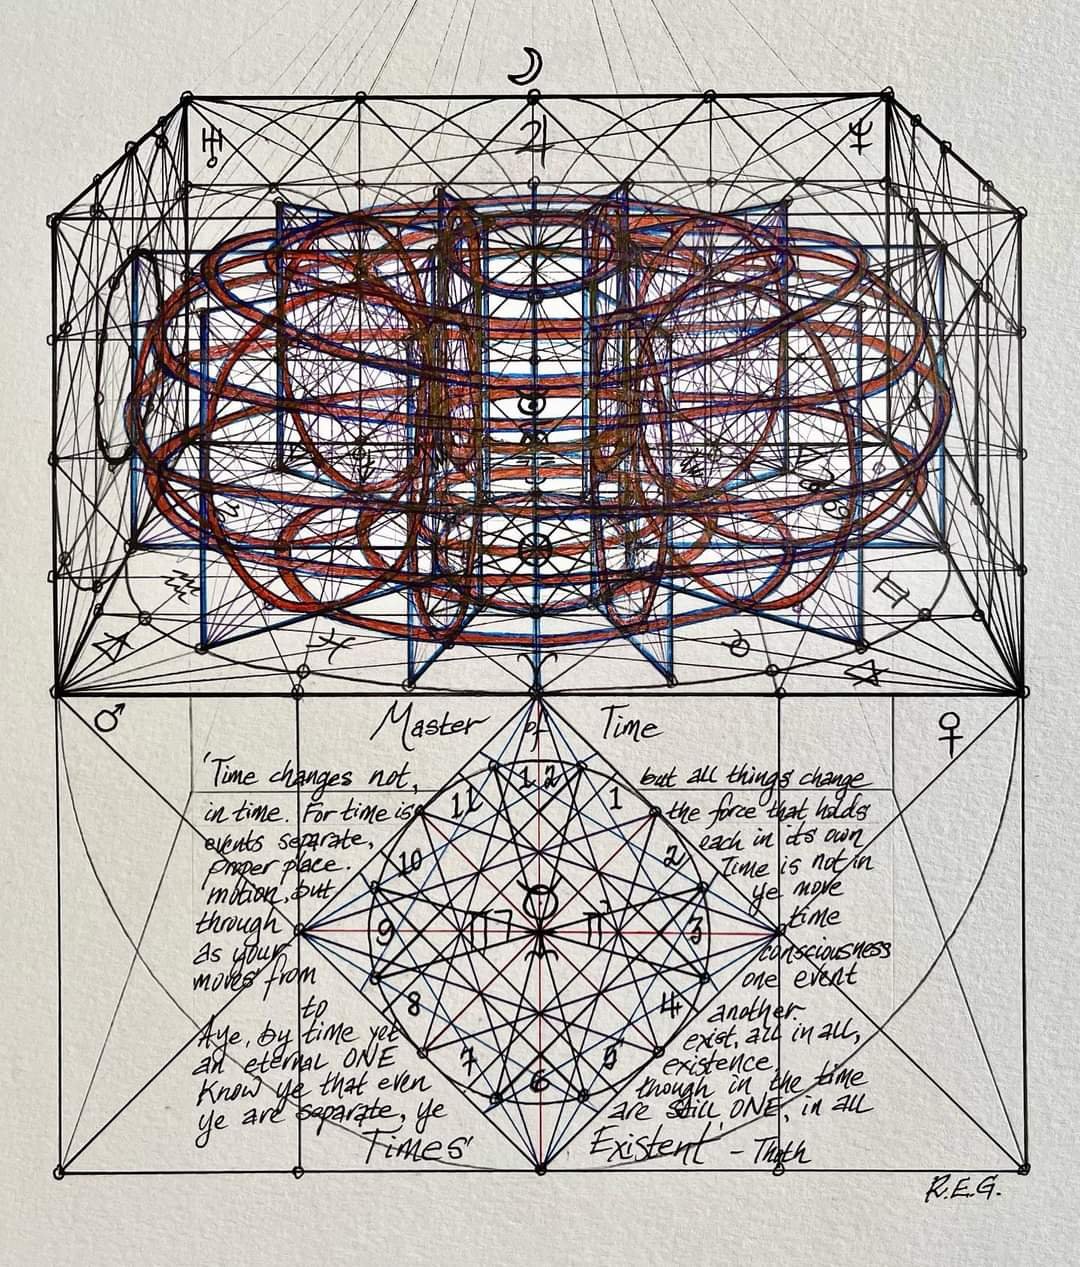 Master of Time
'Time changes not, but all things change
in time. For time is the force that holds
events separate, each in its own
proper place. Time is not in
motion, but ye move
through time
as your consciousness
moves from one event
to another.
Aye, by time yet exist, all in all,
an eternal ONE existence.
Know ye that even though in the time
ye are separate, ye are still ONE, in all
Times' Existent' - Thoth
12
11 1
10 2
9 3
8 4
7 5
6
R.E.G.